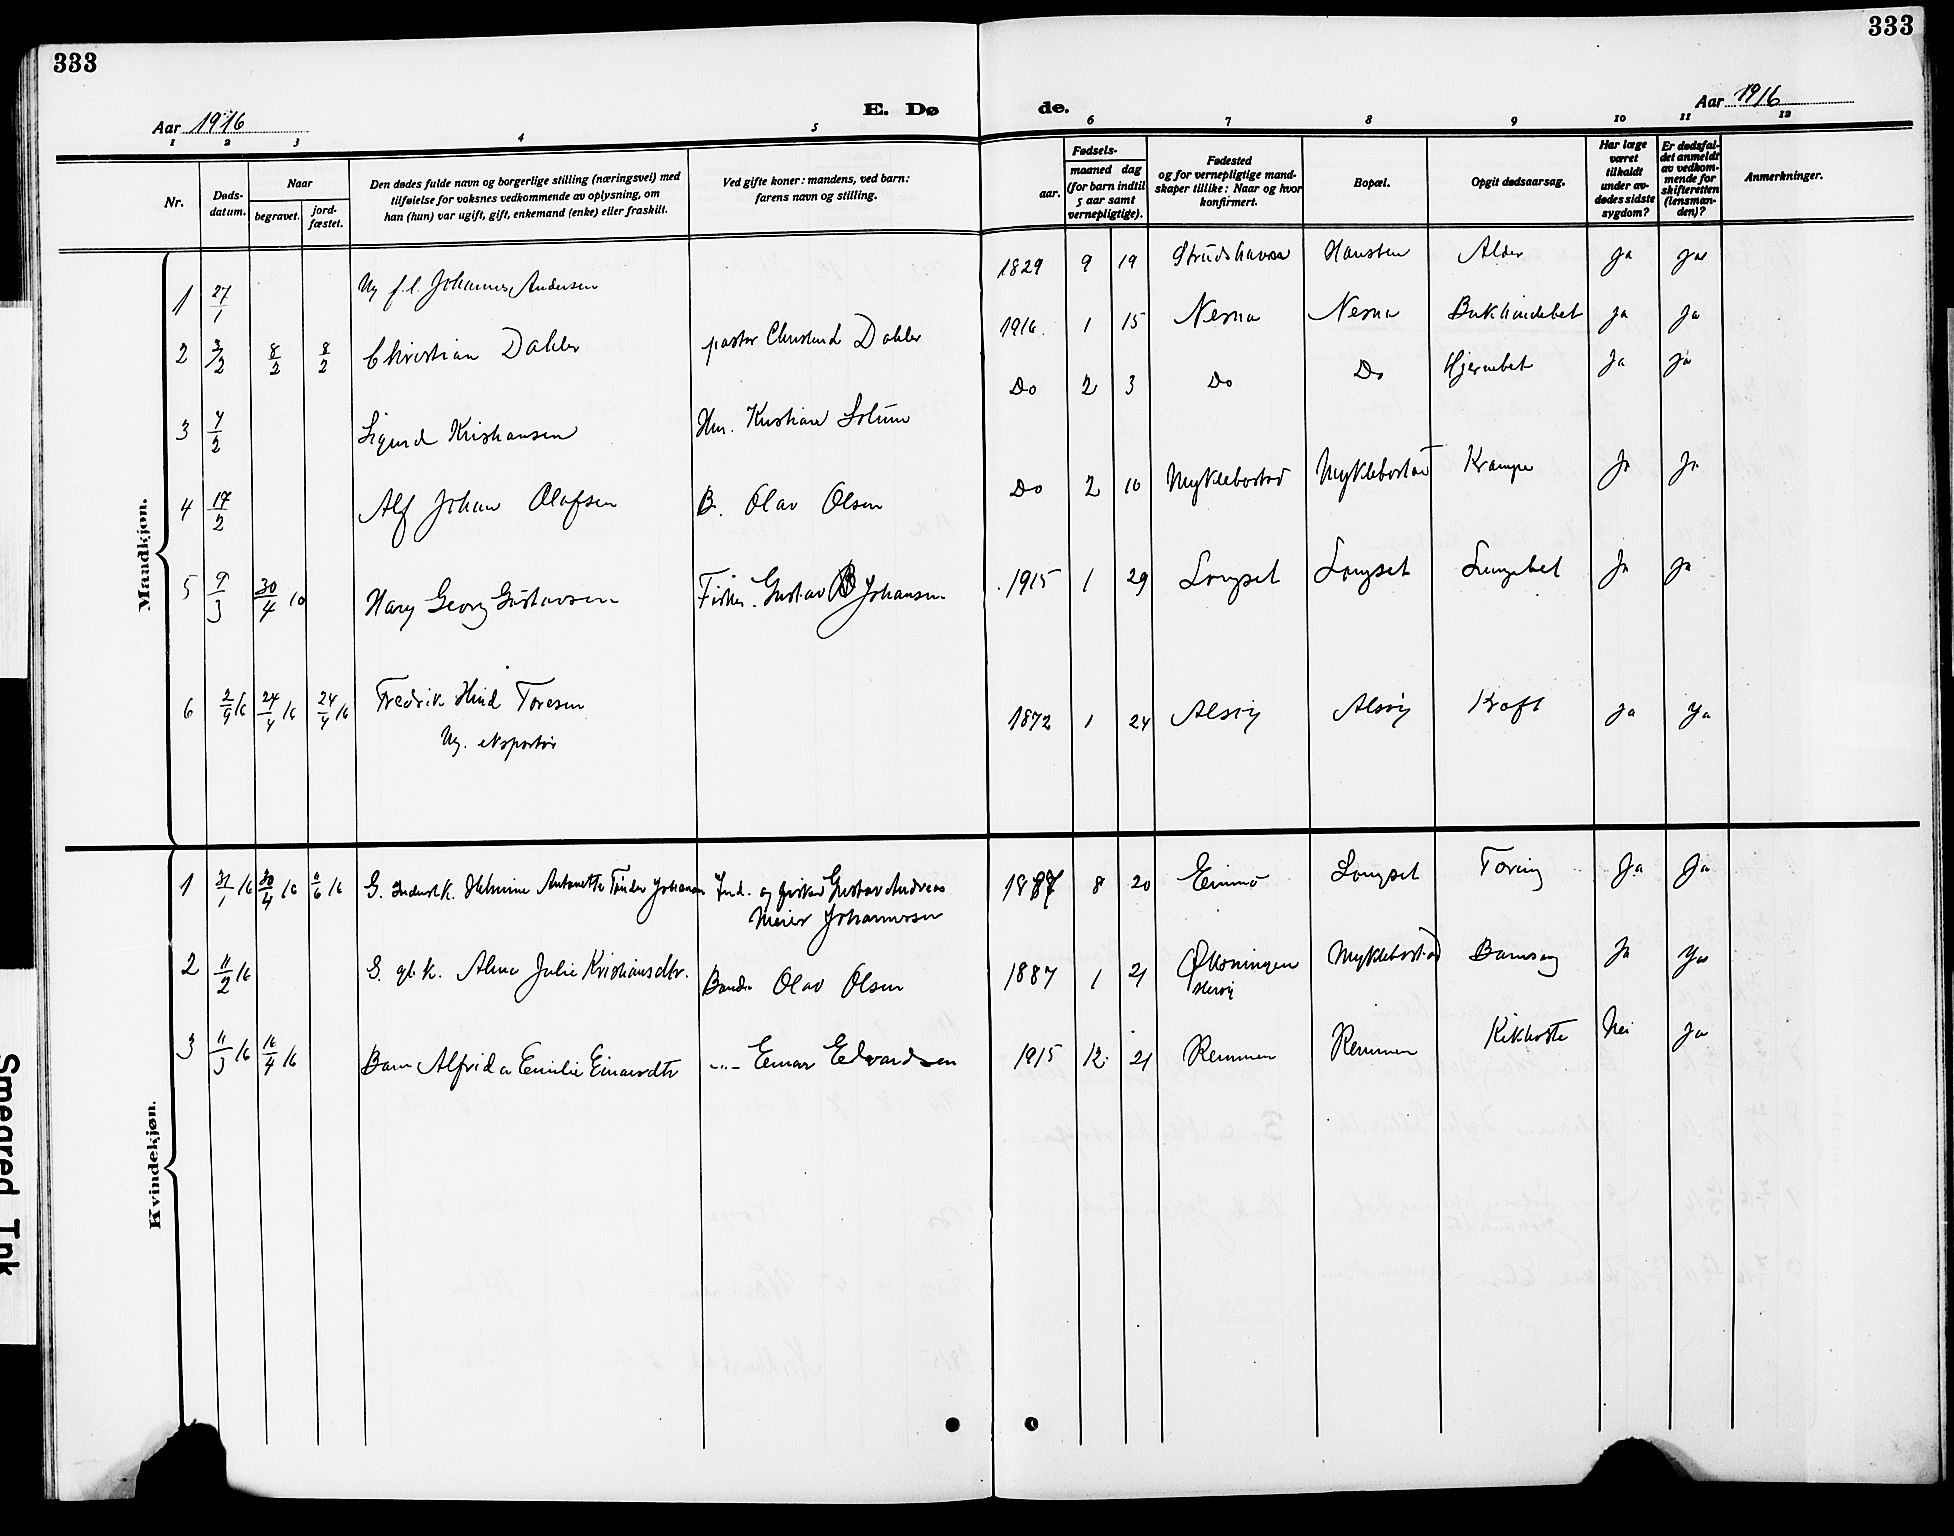 333
333
Aar 1916
E. Dø
de.
Aar 1916
1 2 3 4 5 6 7 8 9 10 11 12
Nr.
Døds-
datum.
Naar
begravet.
jord-
fæstet.
Den dødes fulde navn og borgerlige stilling (næringsvei) med
tilføielse for voksnes vedkommende av oplysning, om
han (hun) var ugift, gift, enkemand (enke) eller fraskilt.
Ved gifte koner: mandens, ved barn:
farens navn og stilling.
Fødsels-
aar.
maaned dag
(for barn indtil
5 aar samt
vernepligtige).
Fødested
og for vernepligtige mand-
skaper tillike: Naar og hvor
konfirmert.
Bopæl.
Opgit dødsaarsag.
Har læge
været
tilkaldt
under av-
dødes sidste
sygdom?
Er dødsfal-
det anmeldt
av vedkom-
mende for
skifteretten
(lensman-
den)?
Anmerkninger.
Mandkjøn.
1 27/1 Ug f.l. Johannes Andersen 1829 9 19 Hausten Alder Ja Ja
2 3/2 8/2 8/2 Christian Dahler pastor Dahler 1916 1 15 Nesna Nesna Ja Ja
3 7/2 Sigurd Kristiansen Hm. Kristian Solum Do 2 3 Do Do Ja Ja
4 17/2 Alf Johan Olafsen B. Olav Olsen Do 2 10 Myklebostad Myklebostad Krampe Ja Ja
5 9/3 30/4 16 Hary Georg Gustavsen Fisker. Gustav Johansen 1915 1 29 Longset Longset Ja Ja
6 2/4 16 24/4 16 24/4 16 Fredrik Hind Toresen 1872 1 24 Alsøy Alsøy Kræft Ja Ja
Ug. eksportør
Kvindekjøn.
1 31/1 16 30/4 16 6/6 16 G. Inderstk. Antonette Tønder Johansen Ind. og fisker Gustav Andreas 1887 8 20 Longset Tæring Ja Ja
Meier Johannesen
2 11/2 16 G. gbk. Alma Julie Kristiansdtr. Bonde Olav Olsen 1887 1 21 Øksningen Myklebostad Barnseng Ja Ja
Herøy
3 11/3 16 16/4 16 Barn Alfrida Emilie Einarsdtr -"- Einar Edvardsen 1915 12 21 Remmen Remmen Kikhoste Nei Ja
Smegred Tnk